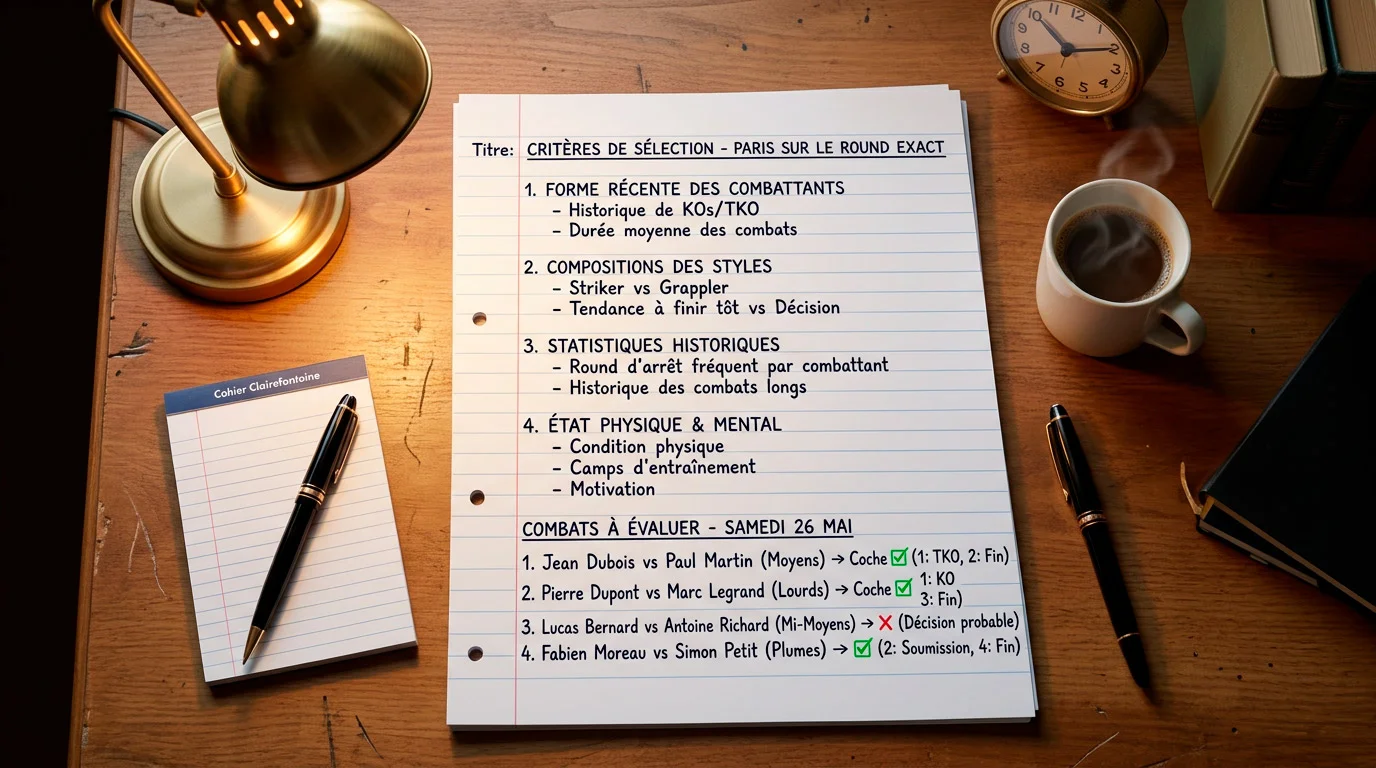 Titre: CRITÈRES DE SÉLECTION – PARIS SUR LE ROUND EXACT
1. FORME RÉCENTE DES COMBATTANTS
– Historique de KOs/TKO
– Durée moyenne des combats
2. COMPOSITIONS DES STYLES
– Striker vs Grappler
– Tendance à finir tôt vs Décision
3. STATISTIQUES HISTORIQUES
– Round d'arrêt fréquent par combattant
– Historique des combats longs
4. ÉTAT PHYSIQUE & MENTAL
– Condition physique
– Camps d'entraînement
– Motivation
COMBATS À ÉVALUER – SAMEDI 26 MAI
1. Jean Dubois vs Paul Martin (Moyens) → Coche ✅ (1: TKO, 2: Fin)
2. Pierre Dupont vs Marc Legrand (Lourds) → Coche ✅ 1: KO
3: Fin)
3. Lucas Bernard vs Antoine Richard (Mi-Moyens) → ❌ (Décision probable)
4. Fabien Moreau vs Simon Petit (Plumes) → ✅ (2: Soumission, 4: Fin)
Cohier Clairefontaine
12
1
2
3
4
5
6
7
8
10
11